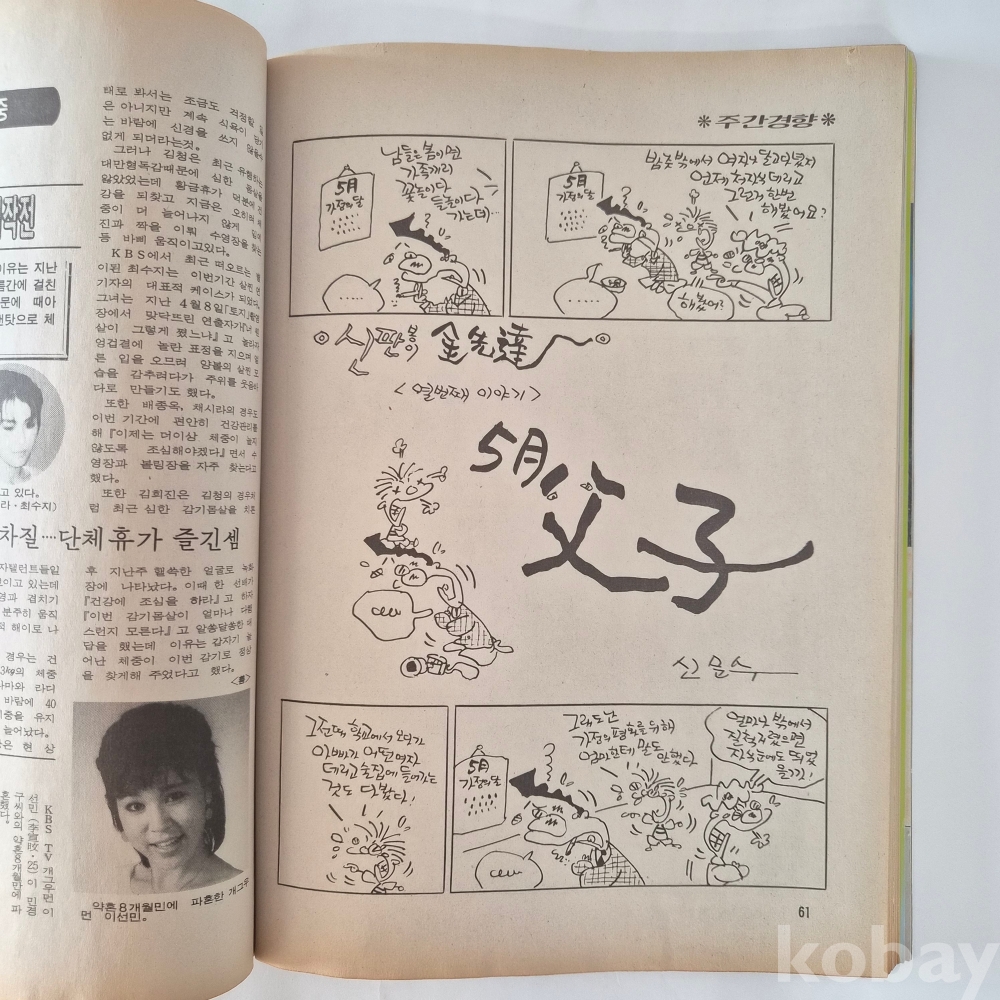 중
작전
이유는 지난
름간에 걸친
문에 때아
탓으로 체
고 있다.
라·최수지)
차질····단체휴가 즐긴셈
자탤런트들일
보이고 있는데
영과 겹치기
분주히 움직
적 해이로 나
경우는 건
3kg의 체중
나마와 라디
바람에 40
체중을 유지
늘어났다.
은 현 상
태로 봐서는 조금도 걱정할
은 아니지만 계속 식욕이
는 바람에 신경을 쓰지 않을수
없게 되더라는것.
그러나 김청은 최근 유행하는
대만형독감때문에 심한 몸살을
앓았었는데 황금휴가 덕분에 건
강을 되찾고 지금은 오히려 체
중이 더 늘어나지 않게
진과 짝을 이뤄 수영장을 찾는
등 바삐 움직이고있다.
KBS에서 최근 떠오르는 별
이된 최수지는 이번기간 살찐 연
기자의 대표적 케이스가 되었다.
그녀는 지난 4월8일 「토지」촬영
장에서 맞닥뜨린 연출자가 『너 왜
살이 그렇게 쪘느냐』고 놀라자
엉겁결에 놀란 표정을 지으며 얼
른 입을 오므려 양볼의 살찐 모
습을 감추려다가 주위를 웃음바
다로 만들기도 했다.
또한 배종옥, 채시라의 경우도
이번 기간에 편안히 건강관리를
해 『이제는 더이상 체중이 늘지
않도록 조심해야겠다』면서 수
영장과 볼링장을 자주 찾는다고
했다.
또한 김희진은 김청의 경우처
럼 최근 심한 감기몸살을 치른
후 지난주 핼쑥한 얼굴로 녹화
장에 나타났다. 이때 한 선배가
『건강에 조심을 하라』고 하자
『이번 감기몸살이 얼마나 다행
스런지 모른다』고 알쏭달쏭한 대
답을 했는데 이유는 갑자기 늘
어난 체중이 이번 감기로 정상
을 찾게해 주었다고 했다.
KBS TV 개그우먼 이
선민(李宣旼·25)이 민
구씨와의 약혼8개월만에 파
혼했다.
약혼8개월만에 파혼한 개그우
먼 이선민.
*주간경향*
남들은 봄이면
가족끼리
꽃놀이다
들놀이다
가는데…
5月
가정의달
.....
밤낮 밖에서 여자나 달고다녔지
언제 처자식 데리고
그런거 한번
해봤어요?
5月
가정의달
.....
해봤어?
신판 봉이 金先達
<열번째 이야기>
5月 父子
신문수
그전때 학교에서 오다가
아빠가 어떤여자
데리고 술집에 들어가는
것도 다봤다!
그래도 난
가정의 평화를 위해
엄마한테 말도
안했다
얼마나 밖에서
질척거렸으면
자식눈에도 띄었
을까!
5月
가정의달
61
kobay